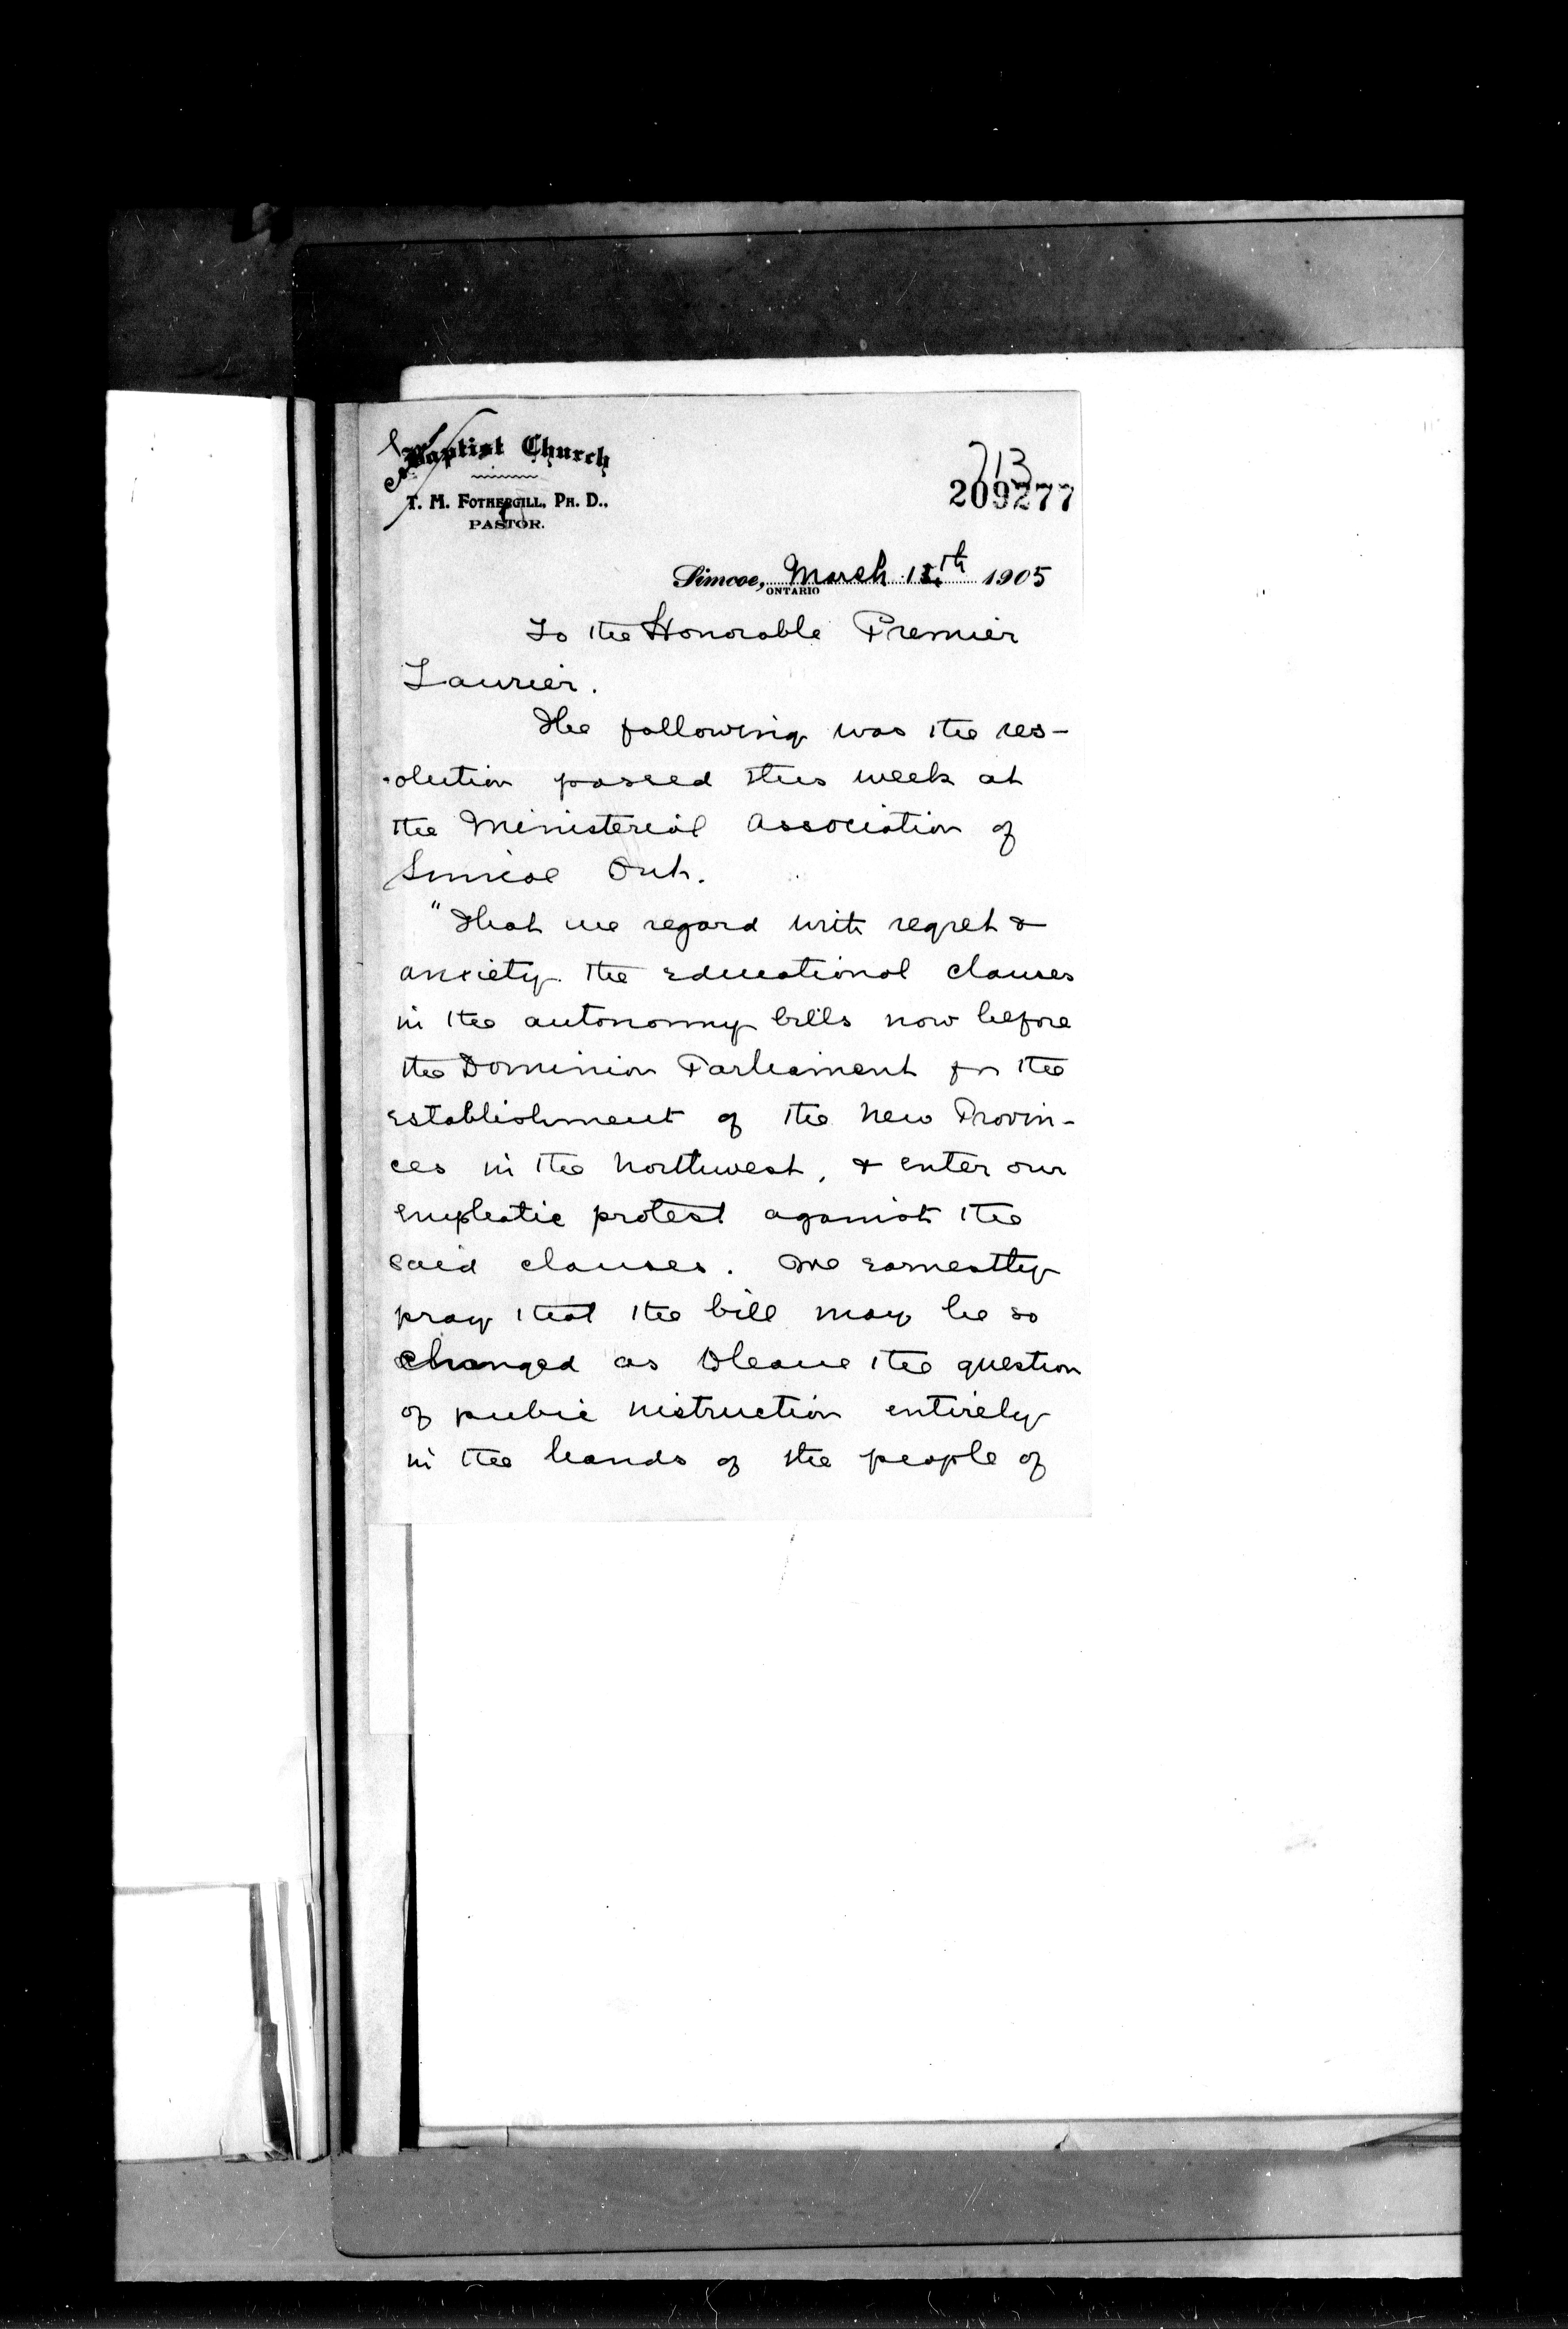 Baptist Church
T. M. FOTHERGILL, PH. D.,
PASTOR.
713
209277
Simcoe, March th 1905
ONTARIO
To the Honorable Premier
Laurier.
The following was the res-
olution passed this week at
the Ministerial Association of
Simcoe Ont.
"That we regard with regret &
anxiety the educational clauses
in the autonomy bills now before
the Dominion Parliament for the
establishment of the New Provin-
ces in the Northwest, & enter our
emphatic protest against the
said clauses. We earnestly
pray that the bill may be so
changed as to leave the question
of public instruction entirely
in the hands of the people of